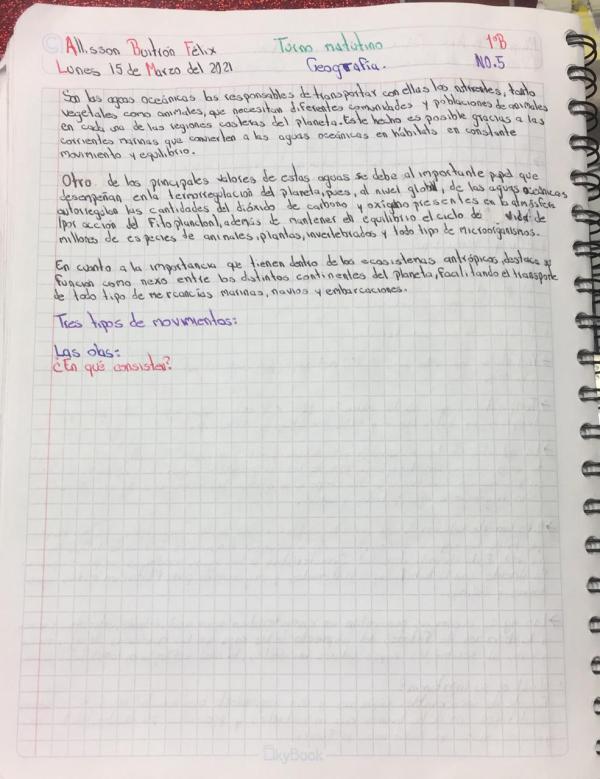 Allisson Buitrón Félix Turno matutino 1ºB
Lunes 15 de Marzo del 2021 Geografía. NO.5
Son las aguas oceánicas las responsables de transportar con ellas los nutrientes, tanto
vegetales como animales, que necesitan diferentes comunidades y poblaciones de animales
en cada una de las regiones costeras del planeta. Este hecho es posible gracias a las
corrientes marinas que convierten a las aguas oceánicas en hábitats en constante
movimiento y equilibrio.
Otro de los principales valores de estas aguas se debe al importante papel que
desempeñan en la termorregulación del planeta, pues, al nivel global, de las aguas oceánicas
autorregula las cantidades del dióxido de carbono y oxígeno presentes en la atmósfera
(por acción del Fitoplancton), además de mantener en equilibrio el ciclo de vida de
millones de especies de animales, plantas, invertebrados y todo tipo de microorganismos.
En cuanto a la importancia que tienen dentro de los ecosistemas antrópicos, destaca su
función como nexo entre los distintos continentes del planeta, facilitando el transporte
de todo tipo de mercancías marinas, navios y embarcaciones.
Tres tipos de movimientos:
Las olas:
¿En qué consisten?
SkyBook